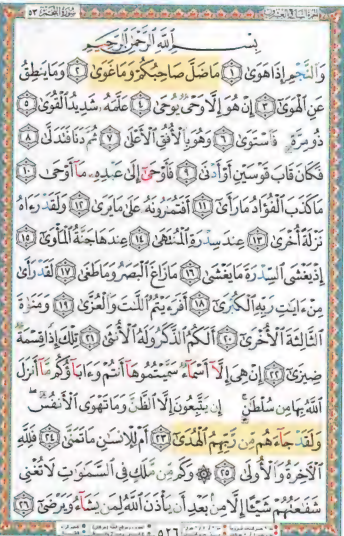 الجزء السابع والعشرون
سورة النجم ٥٣
بِسْمِ ٱللَّهِ ٱلرَّحْمَٰنِ ٱلرَّحِيمِ
وَٱلنَّجْمِ إِذَا هَوَىٰ ١ مَا ضَلَّ صَاحِبُكُمْ وَمَا غَوَىٰ ٢ وَمَا يَنطِقُ
عَنِ ٱلْهَوَىٰٓ ٣ إِنْ هُوَ إِلَّا وَحْىٌ يُوحَىٰ ٤ عَلَّمَهُۥ شَدِيدُ ٱلْقُوَىٰ ٥
ذُو مِرَّةٍ فَٱسْتَوَىٰ ٦ وَهُوَ بِٱلْأُفُقِ ٱلْأَعْلَىٰ ٧ ثُمَّ دَنَا فَتَدَلَّىٰ ٨
فَكَانَ قَابَ قَوْسَيْنِ أَوْ أَدْنَىٰ ٩ فَأَوْحَىٰٓ إِلَىٰ عَبْدِهِۦ مَآ أَوْحَىٰ ١٠
مَا كَذَبَ ٱلْفُؤَادُ مَا رَأَىٰٓ ١١ أَفَتُمَٰرُونَهُۥ عَلَىٰ مَا يَرَىٰ ١٢ وَلَقَدْ رَءَاهُ
نَزْلَةً أُخْرَىٰ ١٣ عِندَ سِدْرَةِ ٱلْمُنتَهَىٰ ١٤ عِندَهَا جَنَّةُ ٱلْمَأْوَىٰٓ ١٥
إِذْ يَغْشَى ٱلسِّدْرَةَ مَا يَغْشَىٰ ١٦ مَا زَاغَ ٱلْبَصَرُ وَمَا طَغَىٰ ١٧ لَقَدْ رَأَىٰ
مِنْ ءَايَٰتِ رَبِّهِ ٱلْكُبْرَىٰٓ ١٨ أَفَرَءَيْتُمُ ٱللَّٰتَ وَٱلْعُزَّىٰ ١٩ وَمَنَوٰةَ
ٱلثَّالِثَةَ ٱلْأُخْرَىٰٓ ٢٠ أَلَكُمُ ٱلذَّكَرُ وَلَهُ ٱلْأُنثَىٰ ٢١ تِلْكَ إِذًا قِسْمَةٌ
ضِيزَىٰٓ ٢٢ إِنْ هِىَ إِلَّآ أَسْمَآءٌ سَمَّيْتُمُوهَآ أَنتُمْ وَءَابَآؤُكُم مَّآ أَنزَلَ
ٱللَّهُ بِهَا مِن سُلْطَٰنٍ ۚ إِن يَتَّبِعُونَ إِلَّا ٱلظَّنَّ وَمَا تَهْوَى ٱلْأَنفُسُ ۖ
وَلَقَدْ جَآءَهُم مِّن رَّبِّهِمُ ٱلْهُدَىٰٓ ٢٣ أَمْ لِلْإِنسَٰنِ مَا تَمَنَّىٰ ٢٤ فَلِلَّهِ
ٱلْءَاخِرَةُ وَٱلْأُولَىٰ ٢٥ ۞ وَكَم مِّن مَّلَكٍ فِى ٱلسَّمَٰوَٰتِ لَا تُغْنِى
شَفَٰعَتُهُمْ شَيْـًٔا إِلَّا مِنۢ بَعْدِ أَن يَأْذَنَ ٱللَّهُ لِمَن يَشَآءُ وَيَرْضَىٰٓ ٢٦
٥٢٦